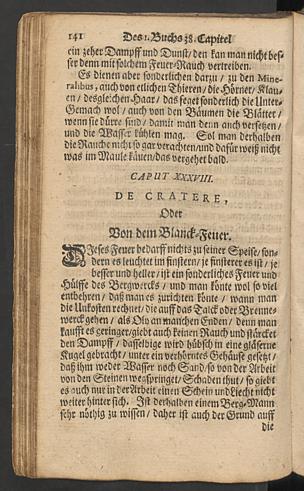 141 Des 1. Buchs 38. Capitel
ein zeher Dampff und Dunst / den kan man nicht bes-
ser denn mit solchem Feuer-Rauch vertreiben.
Es dienen aber sonderlichen darzu / zu den Mine-
ralibus, auch von etlichen Thieren / die Hörner / Klau-
en / desgleichen Haar / das feget sonderlich die Unter-
Gemach wol / auch von den Bäumen die Blätter /
wenn sie dürre sind / damit man denn auch versetzen /
und die Wasser kühlen mag. Sol man derhalben
die Rauche nicht so gar verachten / und dafür weiß nicht
was im Maule käuen / das vergehet bald.
CAPUT XXXVIII.
DE CRATERE,
Oder
Von dem Blanck-Feuer.
DIeses Feuer bedarff nichts zu seiner Speise / son-
dern es leuchtet im finstern / je finsterer es ist / je
besser und heller / ist ein sonderliches Feuer und
Hülffe des Bergwercks / und man könte wol so viel
entbehren / daß man es zurichten könte / wann man
die Unkosten rechnet / die auff das Talck oder Brenne-
werck gehen / als an manchen Enden / denn man
kaufft es geringe / giebt auch keinen Rauch und stärcket
den Dampff / dasselbige wird hübsch in eine gläserne
Kugel gebracht / unter ein verhörntes Gehäuse gesetzt /
daß ihm weder Wasser noch Sand / so von der Arbeit
von den Steinen wegspringet / Schaden thut / so giebt
es auch nur in der Arbeit einen Schein und Liecht nicht
weiter hinter sich. Ist derhalben einem Berg-Mann
sehr nöthig zu wissen / daher ist auch der Grund auff
die